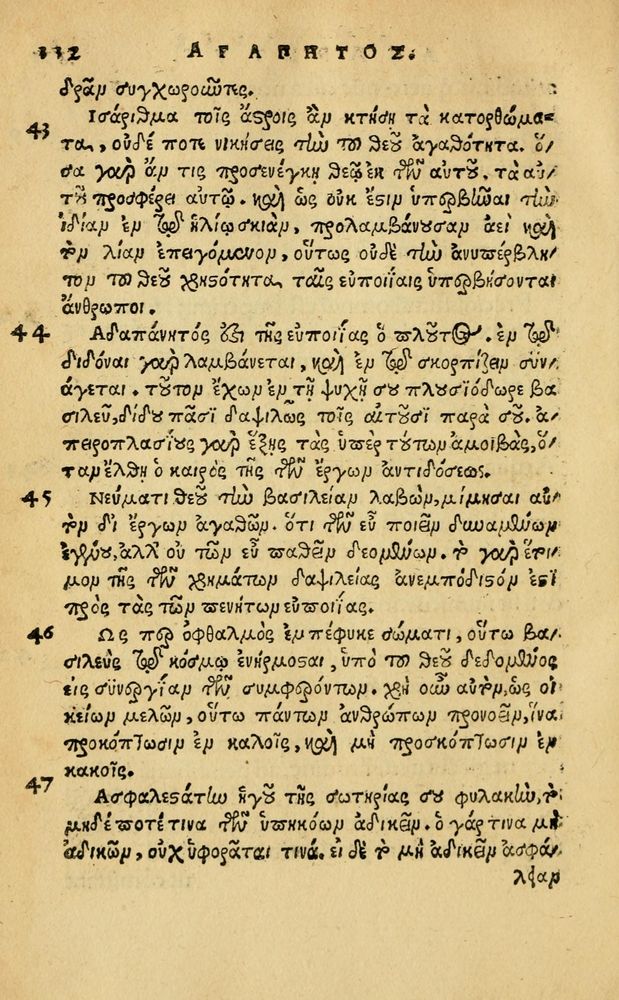 332 ΑΓΑΠΗΤΟΣ.
δρᾶν συγχωροῦντες.
43 Ισάριθμα τοῖς ἄστροις ἂν κτήσῃ τὰ κατορθώμα-
τα, οὐδέ ποτε νικήσεις τὴν τοῦ θεοῦ ἀγαθότητα. ὅ-
σα γαρ ἄν τις προσενέγκῃ θεῷ ἐκ τῶν αὐτοῦ. τὰ αὐ-
τοῦ προσφέρει αὐτῷ. καὶ ὡς οὐκ ἔστιν ὑπερβῆναι τὴν
ἰδίαν ἐν τῷ ἡλίῳ σκιὰν, προλαμβάνουσαν ἀεὶ καὶ
τὸν λίαν ἐπειγόμενον, οὕτως οὐδὲ τὴν ἀνυπέρβλη-
τον τοῦ θεοῦ χρηστότητα, ταῖς εὐποιΐαις ὑπερβήσονται
ἄνθρωποι.
44 Αδαπάνητός ἐστι τῆς εὐποιΐας ὁ πλοῦτος. ἐν τῷ
διδόναι γαρ λαμβάνεται, καὶ ἐν τῷ σκορπίζειν συν-
άγεται. τοῦτον ἔχων ἐν τῇ ψυχῇ σου πλουσιόδωρε βα
σιλεῦ, δίδου πᾶσι δαψιλῶς τοῖς αἰτοῦσι παρὰ σοῦ. ἀ-
πειροπλασίους γαρ ἕξῃς τὰς ὑπὲρ τούτων ἀμοιβὰς, ὅ-
ταν ἔλθῃ ὁ καιρὸς τῆς τῶν ἔργων ἀντιδόσεως.
45 Νεύματι θεοῦ τὴν βασιλείαν λαβὼν, μίμησαι αὐ-
τὸν δι ἔργων ἀγαθῶν. ὅτι τῶν εὖ ποιεῖν δυναμένων
ἐγένου, ἀλλ' οὐ τῶν εὖ παθεῖν δεομένων. τὸ γαρ ἕτοι-
μον τῆς τῶν χρημάτων δαψιλείας ἀνεμπόδιστόν ἐστι
πρὸς τὰς τῶν πενήτων εὐποιΐας.
46 Ως περ ὀφθαλμὸς ἐμπέφυκε σώματι, οὕτω βα-
σιλεὺς τῷ κόσμῳ ἐνήρμοσται, ὑπὸ τοῦ θεοῦ δεδομένος
εἰς συνεργίαν τῶν συμφερόντων. χρὴ οὖν αὐτὸν, ὡς οἰ
κείων μελῶν, οὕτω πάντων ἀνθρώπων προνοεῖν, ἵνα
προκόπτωσιν ἐν καλοῖς, καὶ μὴ προσκόπτωσιν ἐν
κακοῖς.
47 Ασφαλεστάτην ἡγοῦ τῆς σωτηρίας σου φυλακὴν, τὸ
μηδέποτέ τινα τῶν ὑπηκόων ἀδικεῖν. ὁ γάρ τινα μὴ
ἀδικῶν, οὐχ ὑφορᾶται τινά. εἰ δὲ τὸ μὴ ἀδικεῖν ἀσφά-
λειαν